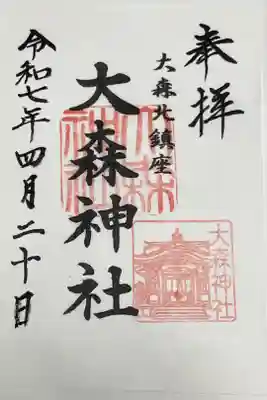 奉拝
大森北鎮座
大森神社
大森神社
令和七年四月二十日